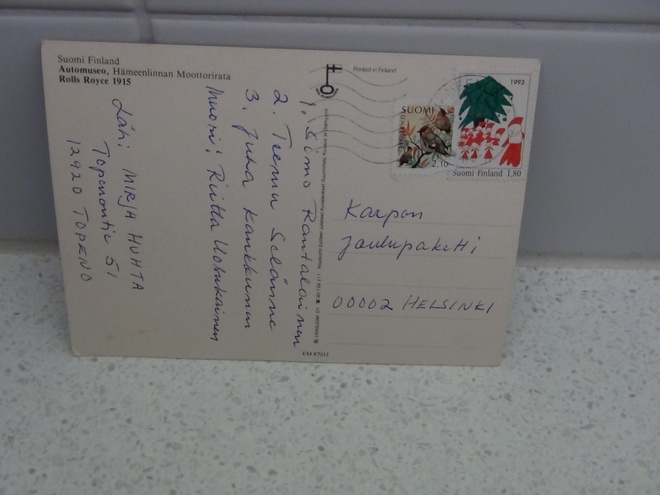 Suomi Finland
Automuseo, Hämeenlinnan Moottorirata
Rolls Royce 1915
Printed in Finland
1. Simo Rantalainen
2. Teemu Selänne
3. Juha Kankkunen
Muori: Riitta Uosukainen
Läh: MIRJA HUHTA
Topenontie 51
12920 TOPENO
EM 87015
SUOMI
FINLAND
2.10
1993
Suomi-Finland 1,80
Karpon
joulupaketti
00002 HELSINKI